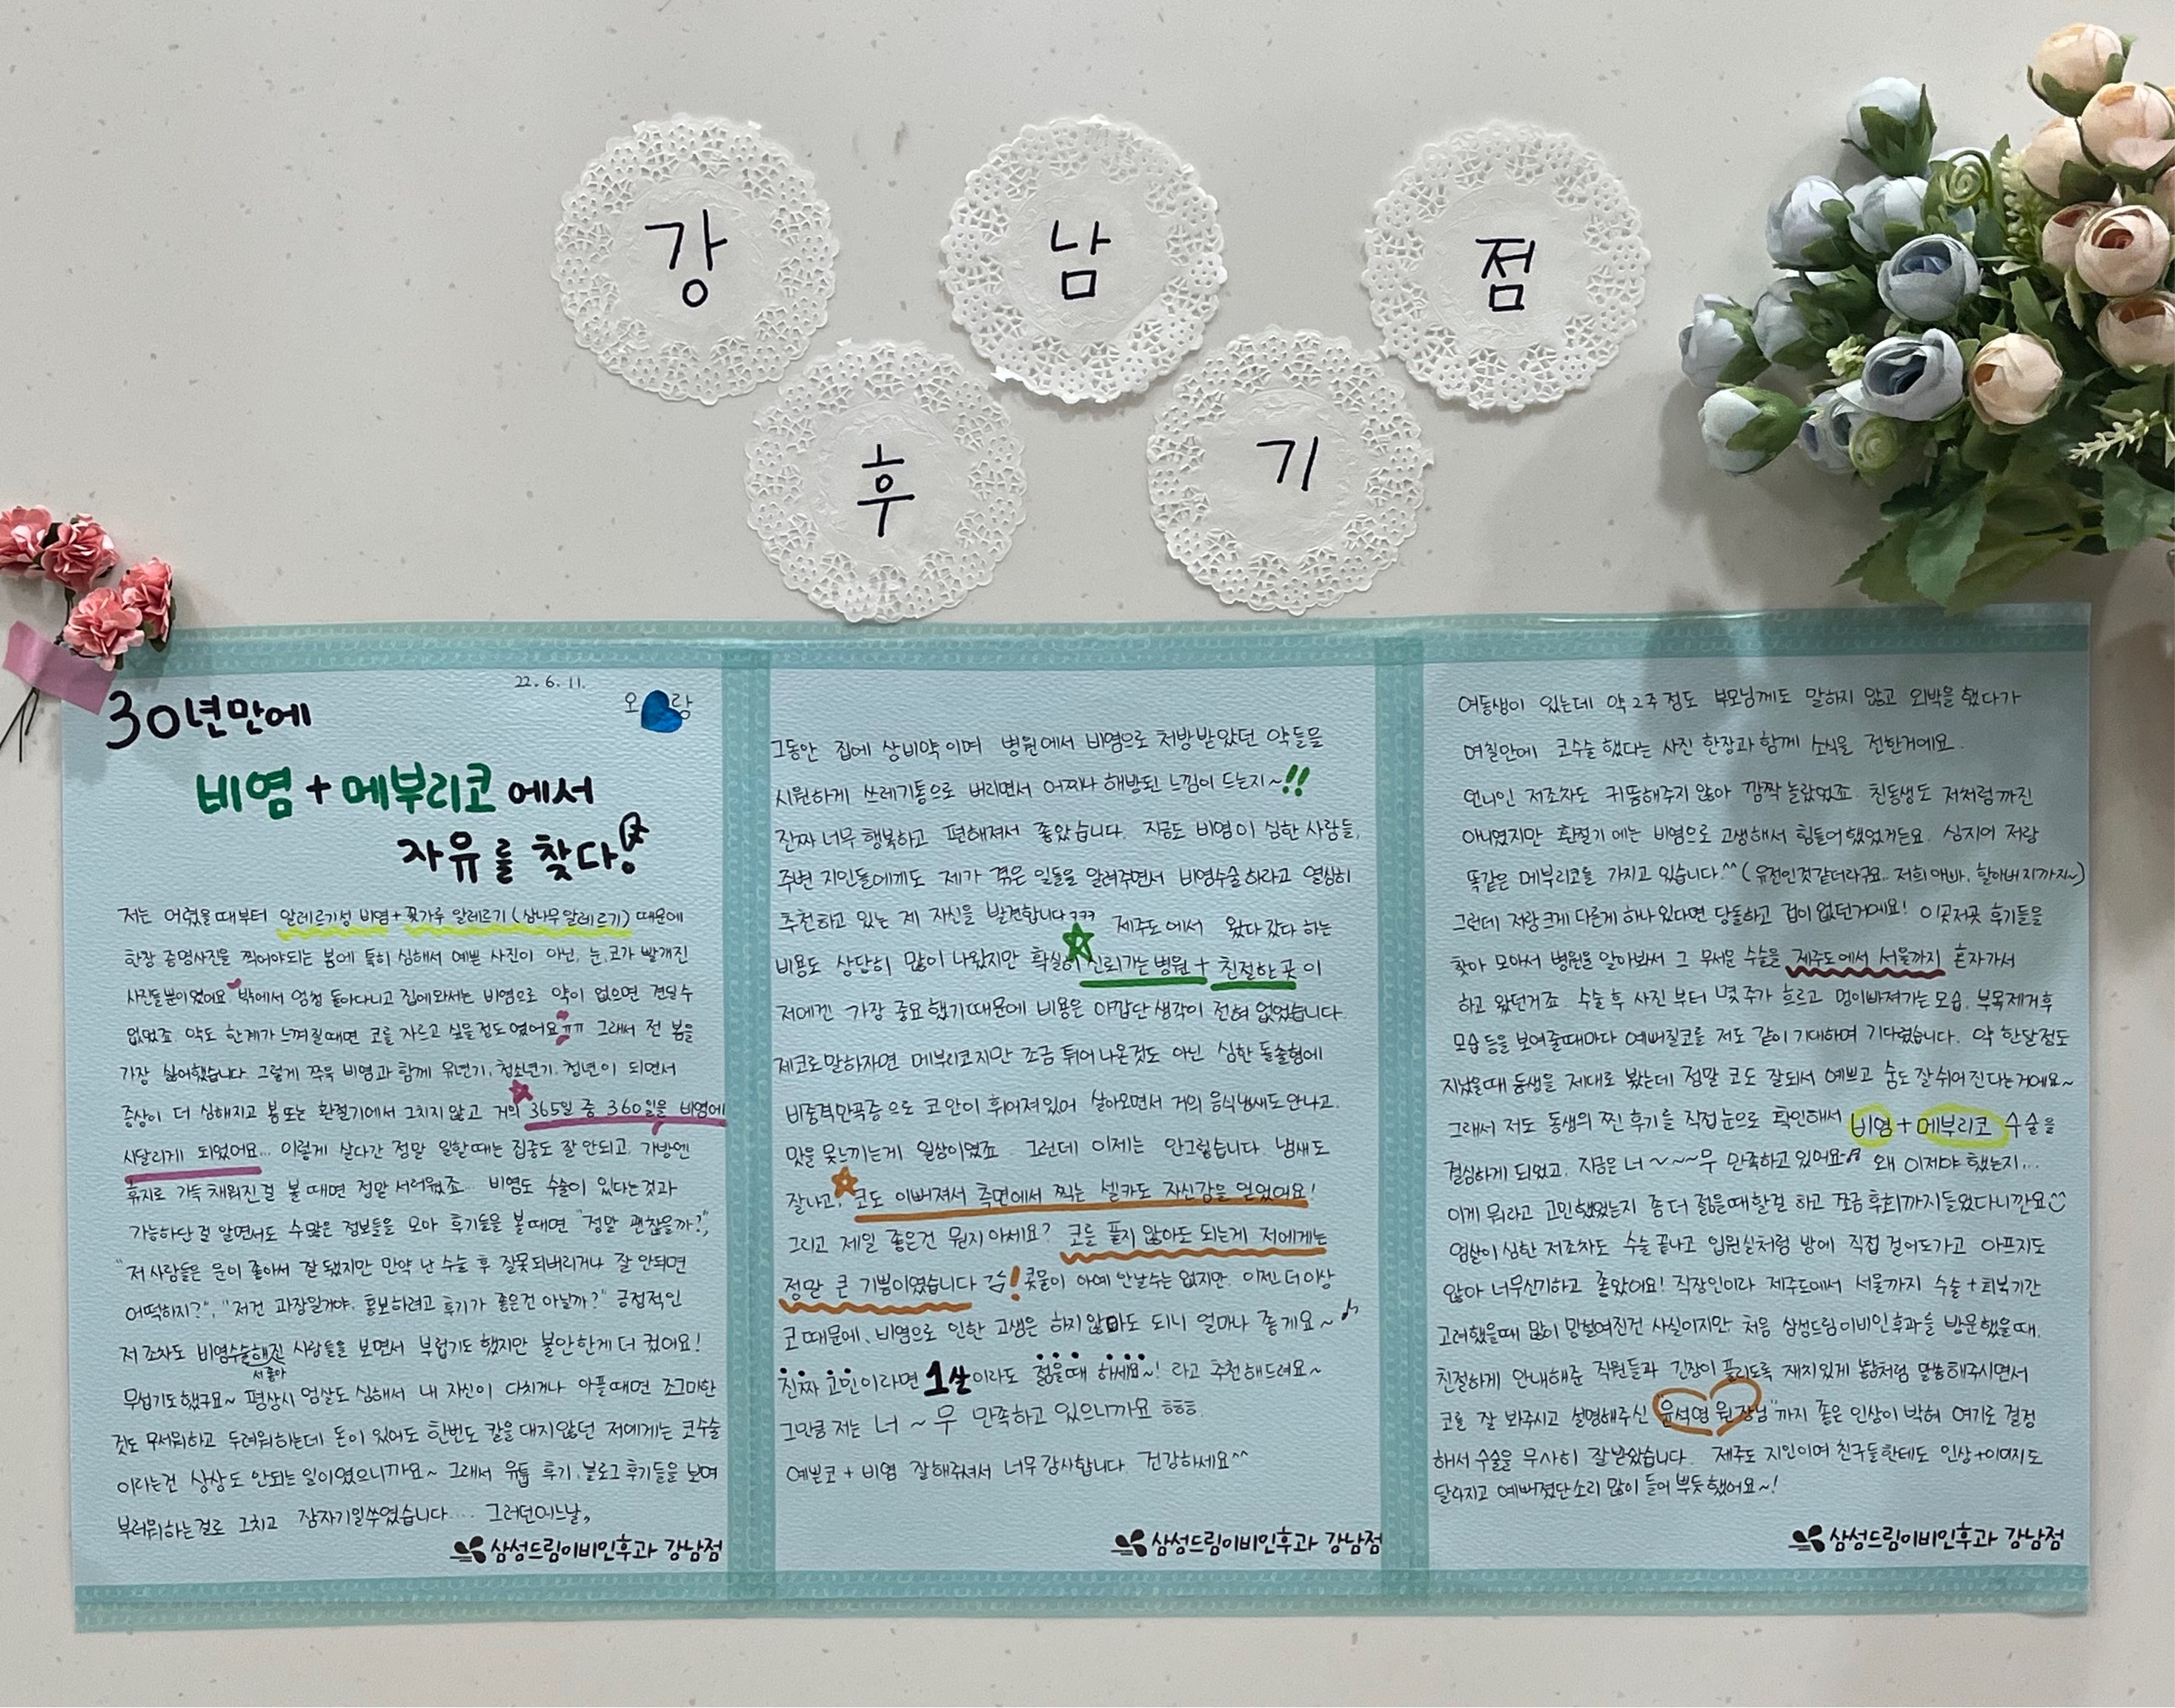 강 남 점
후 기
22. 6. 11.
오 랑
30년만에
비염 + 메부리코에서
자유를 찾다!
저는 어렸을때부터 알레르기성 비염+꽃가루 알레르기(삼나무알레르기) 때문에
한창 증명사진을 찍어야되는 봄에 특히 심해서 예쁜 사진이 아닌, 눈,코가 빨개진
사진들뿐이였어요. 밖에서 엄청 돌아다니고 집에와서는 비염으로 약이 없으면 견딜수
없었죠 약도 한계가 느껴질때면 코를 자르고 싶을정도였어요ㅠㅠ 그래서 전 봄을
가장 싫어했습니다. 그렇게 쭈욱 비염과 함께 유년기, 청소년기, 청년이 되면서
증상이 더 심해지고 봄또는 환절기에서 그치지 않고 거의 365일 중 360일을 비염에
시달리게 되었어요... 이렇게 살다간 정말 일할때는 집중도 잘 안되고, 가방엔
휴지로 가득 채워진걸 볼때면 정말 서러웠죠... 비염도 수술이 있다는것과
가능하단걸 알면서도 수많은 정보들을 모아 후기들을 볼때면 "정말 괜찮을까?",
"저 사람들은 운이 좋아서 잘됐지만 만약 난 수술 후 잘못되버리거나 잘 안되면
어떡하지?", "저건 과장일거야. 홍보하려고 후기가 좋은건 아닐까?" 긍정적인
저 조차도 비염수술해진 사람들을 보면서 부럽기도 했지만 불안한게 더 컸어요!
서 좋아
무섭기도했구요~ 평상시 엄살도 심해서 내 자신이 다치거나 아플때면 조그마한
것도 무서워하고 두려워하는데 돈이 있어도 한번도 칼을 대지않던 저에게는 코수술
이라는건 상상도 안되는일이였으니까요~ 그래서 유튭 후기, 블로그 후기들을 보며
부러워하는걸로 그치고 잠자기일쑤였습니다.... 그러던어느날,
삼성드림이비인후과 강남점
여동생이 있는데 약2주정도 부모님께도 말하지 않고 외박을 했다가
며칠만에 코수술 했다는 사진 한장과 함께 소식을 전한거에요.
언니인 저조차도 귀뜸해주지않아 깜짝놀랐었죠. 친동생도 저처럼까진
아니였지만 환절기에는 비염으로 고생해서 힘들어했었거든요. 심지어 저랑
똑같은 메부리코를 가지고 있습니다^^(유전인것같더라구요.. 저희아빠, 할아버지까지~)
그런데 저랑크게 다른게 하나있다면 당돌하고 겁이없던거에요! 이곳저곳 후기들을
찾아 모아서 병원을 알아봐서 그 무서운 수술을 제주도에서 서울까지 혼자가서
하고 왔던거죠. 수술후 사진부터 몇주가 흐르고 멍이빠져가는 모습, 부목제거후
모습등을 보여줄때마다 예뻐질코를 저도 같이 기대하며 기다렸습니다. 약 한달정도
지났을때 동생을 제대로 봤는데 정말 코도 잘되서 예쁘고 숨도 잘쉬어진다는거에요~
그래서 저도 동생의 찐 후기를 직접눈으로 확인해서 비염+메부리코 수술을
결심하게 되었고, 지금은 너~~~무 만족하고있어요♬ 왜 이제야 했는지...
이게 뭐라고 고민했었는지 좀더 젊을때할걸 하고 쪼금후회까지들었다니깐요
엄살이심한 저조차도 수술끝나고 입원실처럼 방에 직접 걸어도가고 아프지도
않아 너무신기하고 좋았어요! 직장인이라 제주도에서 서울까지 수술+회복기간
고려했을때 많이 망설여진건 사실이지만, 처음 삼성드림이비인후과를 방문했을때,
친절하게 안내해준 직원들과 긴장이 풀리도록 재치있게 농담처럼 말씀해주시면서
코를 잘 봐주시고 설명해주신 "윤석영 원장님"까지 좋은 인상이 박혀 여기로 결정
해서 수술을 무사히 잘받았습니다. 제주도 지인이며 친구들한테도 인상+이미지도
달라지고 예뻐졌단소리 많이 들어 뿌듯했어요~!
삼성드림이비인후과 강남점
그동안 집에 상비약이며 병원에서 비염으로 처방받았던 약들을
시원하게 쓰레기통으로 버리면서 어찌나 해방된 느낌이 드는지~!!
진짜 너무 행복하고 편해져서 좋았습니다. 지금도 비염이 심한 사람들,
주변 지인들에게도 제가 겪은 일들을 알려주면서 비염수술하라고 열심히
추천하고 있는 제 자신을 발견합니다ㅋㅋㅋ 제주도에서 왔다갔다 하는
비용도 상당히 많이 나왔지만 확실히 신뢰가는병원 + 친절한곳이
저에겐 가장 중요했기때문에 비용은 아깝단생각이 전혀 없었습니다.
제코로말하자면 메부리코지만 조금 튀어나온것도 아닌 심한 돌출형에
비중격만곡증으로 코안이 휘어져있어 살아오면서 거의 음식냄새도안나고,
맛을 못느끼는게 일상이였죠. 그런데 이제는 안그렇습니다. 냄새도
잘나고, 코도 이뻐져서 측면에서 찍는 셀카도 자신감을 얻었어요!
그리고 제일 좋은건 뭔지아세요? 코를 풀지 않아도 되는게 저에게는
정말 큰 기쁨이였습니다 콧물이 아예 안날수는 없지만, 이젠더이상
코때문에, 비염으로 인한 고생은 하지않아도 되니 얼마나 좋게요~♪
진짜 고민이라면 1살이라도 젊을때 하세요~! 라고 추천해드려요~
그만큼 저는 너~무 만족하고 있으니까요 ㅎㅎㅎ.
예쁜코 + 비염 잘해주셔서 너무감사합니다. 건강하세요^^
삼성드림이비인후과 강남점